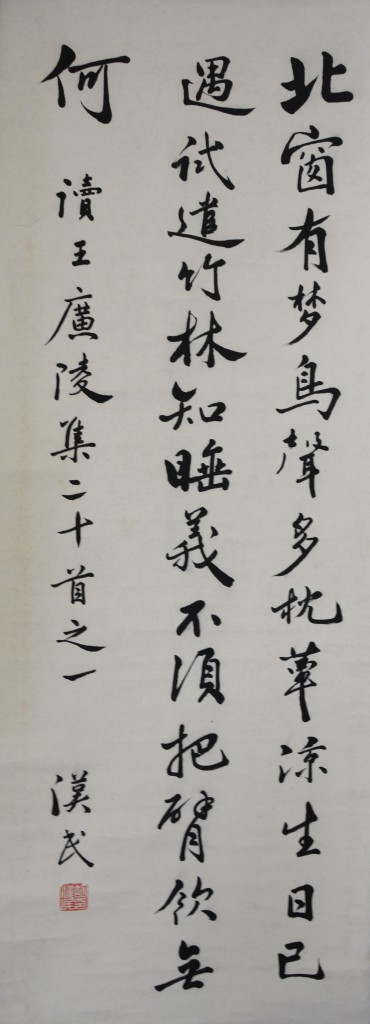 北窗有梦鳥聲多枕簟涼生日已
過試遣竹林知睡義不須把臂飲無
何 讀王廣陵集二十首之一 漢民